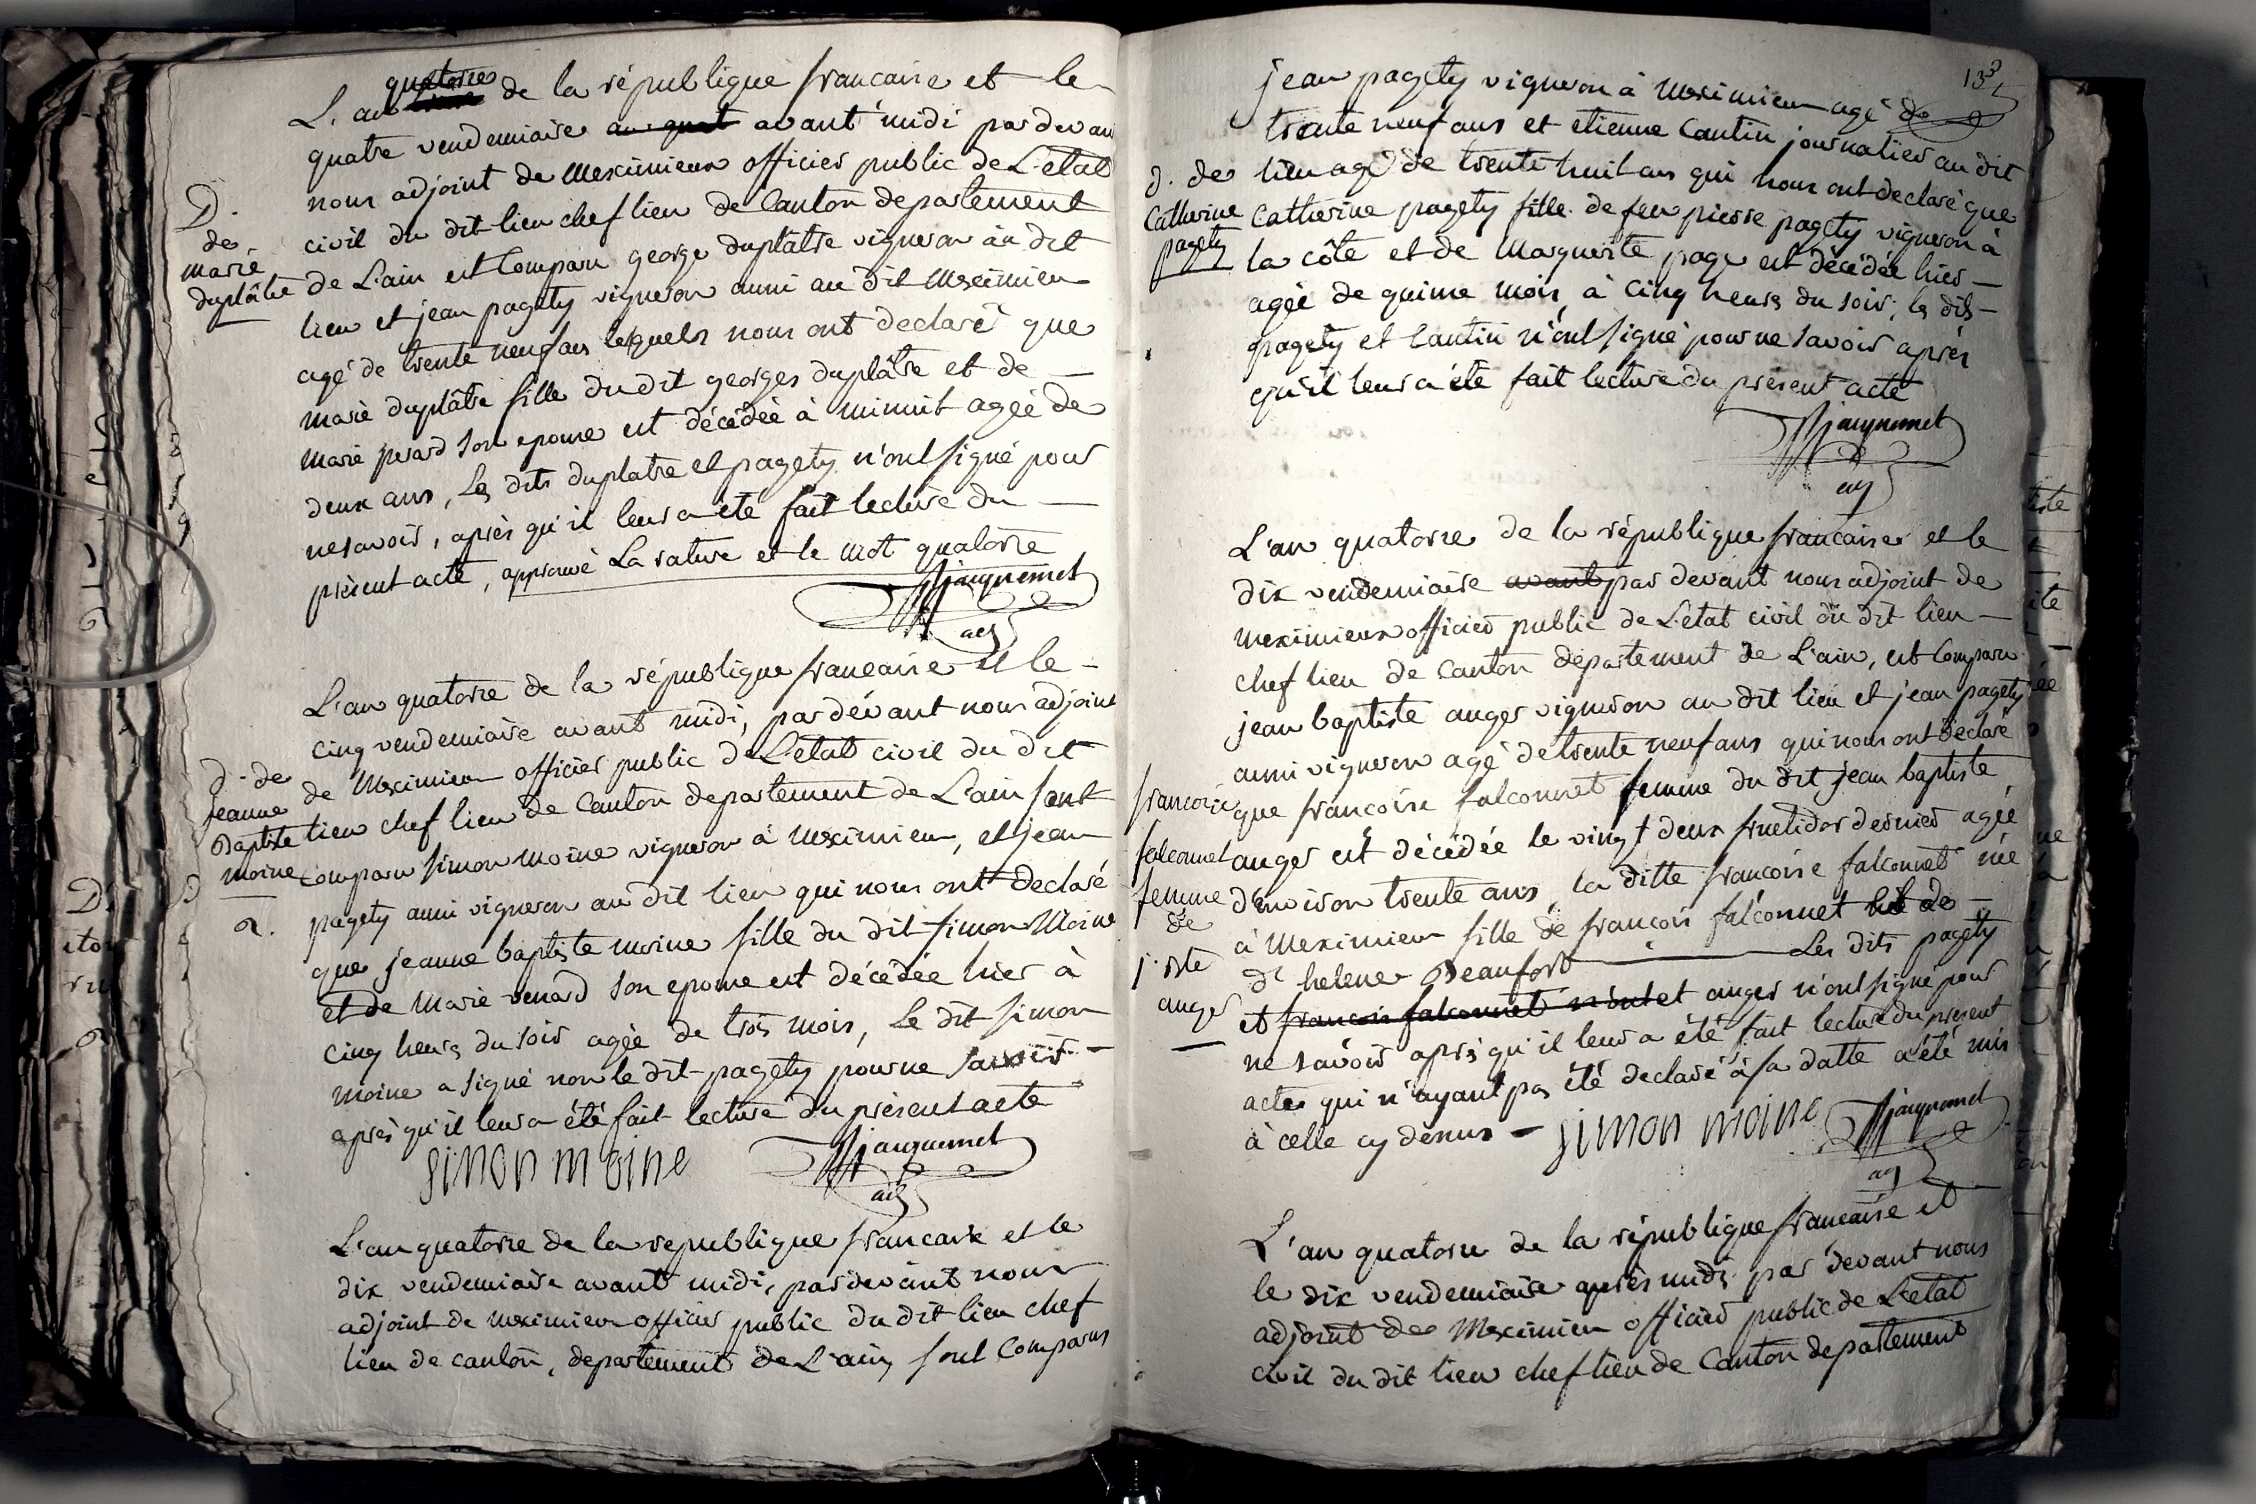 quatorze
L'an treize de la république francaise et le
quatre vendemiaire au quat avant midi par devan
nous adjoint de Meximieux officier public de L'état
civil du dit lieu chef lieu de Canton departement
D.
de
marie
duplâtre
de L'ain est Comparu george duplâtre vigneron au dit
lieu et jean pagety vigneron aussi au dit Meximieu
agé de trente neuf ans lesquels nous ont declaré que
marie duplâtre fille du dit georges duplâtre et de
marie perard son epouse est décédée à minuit agée de
deux ans, Les dits duplatre et pagety n'ont signé pour
ne savoir, après qu'il leur a été fait lecture du
présent acte, approuvé La rature et le mot quatorze
Jacquemet
adj
L'an quatorze de la république francaise et le
cinq vendemiaire avant midi, par dévant nous adjoint
d. de
jeanne
Baptiste
moine
2.
de Meximieu officier public de L'état civil du dit
lieu chef lieu de Canton departement de L'ain sont
comparu simon moine vigneron à Meximieu, et jean
pagety aussi vigneron au dit lieu qui nous ont declaré
que jeanne baptiste moine fille du dit simon Moine
et de Marie venard son epouse est décédée hier à
cinq heures du soir agée de trois mois, Le dit simon
moine a signé non le dit pagety pour ne savoir
après qu'il leur a été fait lecture du présent acte
simon moine
Jacquemet
adj
L'an quatorze de la republique francaise et le
dix vendemiaire avant midi, par devant nous
adjoint de Meximieu officier public du dit lieu chef
lieu de canton, departement de L'ain, sont Comparus
jean pagety vigneron à Meximieu agé de
trente neuf ans et etienne Cantin journalier au dit
d. de
Catherine
pagety
lieu agé de trente huit ans qui nous ont declaré que
Catherine pagety fille de feu pierre pagety vigneron à
la côte et de Marguerite page est décédée hier
agée de quinze mois à cinq heures du soir, les dits
pagety et Cantin n'ont signé pour ne savoir après
qu'il leur a été fait lecture du présent acte
Jacquemet
adj
L'an quatorze de la république francaise et le
dix vendemiaire avant par devant nous adjoint de
meximieux officier public de L'état civil du dit lieu
chef lieu de Canton département de L'ain, est Comparu
jean baptiste anger vigneron au dit lieu et jean pagety
aussi vigneron agé de trente neuf ans qui nous ont déclaré
francoise
falconnet
femme
de
j. bte
anger
que francoise falconnet femme du dit jean baptiste
anger est décédée le vingt deux fructidor dernier agée
d'environ trente ans, la ditte francoise falconnet née
à Meximieu fille de francois falconnet et de
d'helene Beaufort Les dits pagety
et francois falconnet n'ont et anger n'ont signé pour
ne savoir après qu'il leur a été fait lecture du présent
acte qui n'ayant pas été declaré à sa datte a été mis
à celle cy dessus
simon moine
Jacquemet
adj
L'an quatorze de la république francaise et
le dix vendemiaire après midi par dévant nous
adjoint de Meximieu officier public de L'état
civil du dit lieu chef lieu de Canton departement